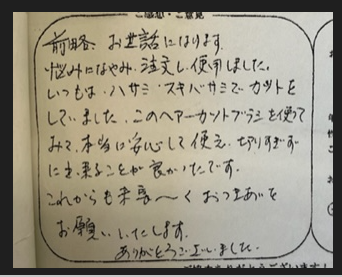 ご感想・ご意見
前略、お世話になります。
悩みになやみ、注文し、使用しました。
いつもは、ハサミ、スキバサミでカットを
していました。このヘアーカットブラシを使って
みて、本当に安心して使え、切りすぎず
に出来ることが良かったです。
これからも末長〜くおつきあいを
お願いいたします。
ありがとうございました。